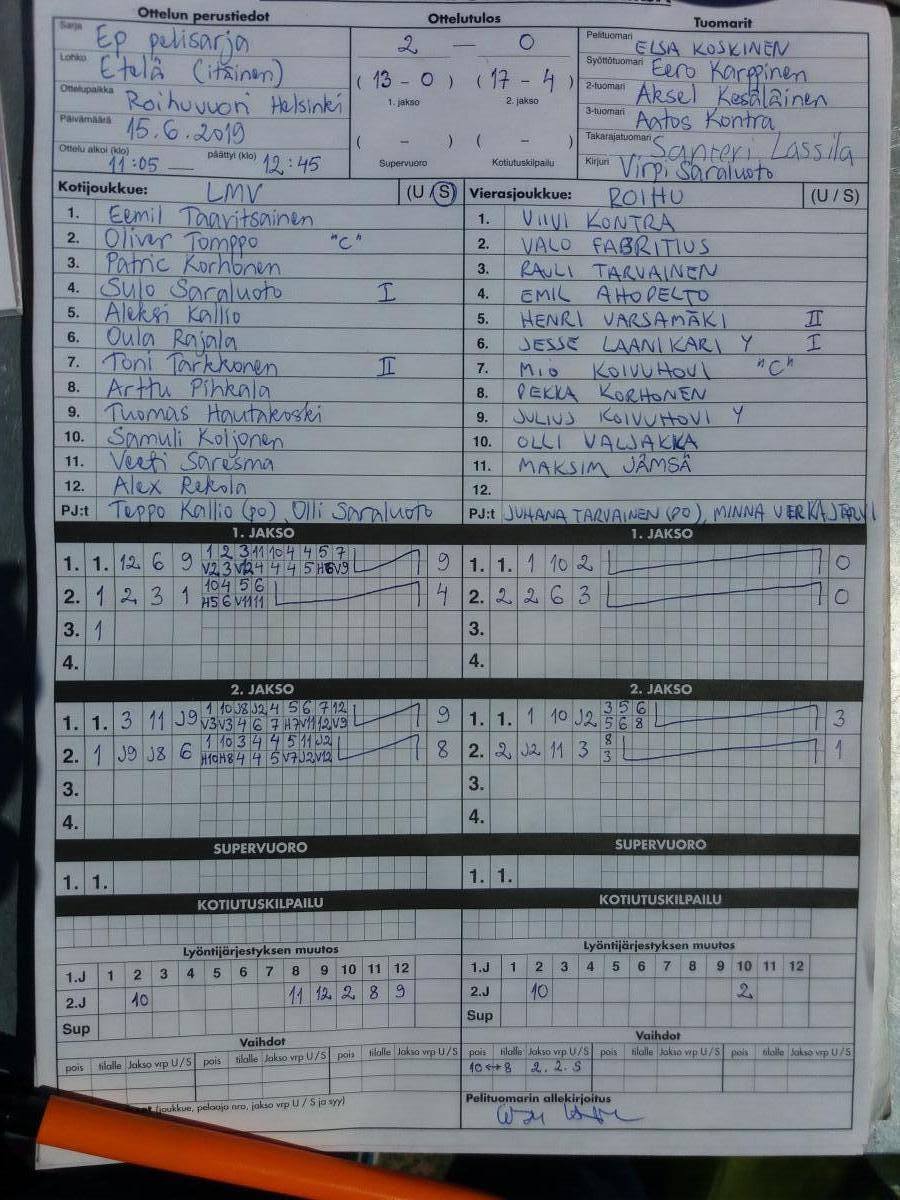 Ottelun perustiedot
Ottelutulos
Tuomarit
Sarja Ep pelisarja
Lohko Etelä (itäinen)
Ottelupaikka Roihuvuori Helsinki
Päivämäärä 15.6.2019
Ottelu alkoi (klo) 11:05 — päättyi (klo) 12:45
2 — 0
( 13 - 0 ) ( 17 - 4 )
1. jakso 2. jakso
( - ) ( - )
Supervuoro Kotiutuskilpailu
Pelituomari ELSA KOSKINEN
Syöttötuomari Eero Karppinen
2-tuomari Aksel Kesäläinen
3-tuomari Aatos Kontra
Takarajatuomari Santeri Lassila
Kirjuri Virpi Saraluoto
Kotijoukkue: LMV (U / S)
1. Eemil Taavitsainen
2. Oliver Tomppo "C"
3. Patric Korhonen
4. Sulo Saraluoto I
5. Aleksi Kallio
6. Oula Rajala
7. Toni Tarkkonen II
8. Arttu Pihkala
9. Tuomas Hautakoski
10. Samuli Koljonen
11. Veeti Saresma
12. Alex Rekola
PJ:t Teppo Kallio (po), Olli Saraluoto
Vierasjoukkue: ROIHU (U / S)
1. VIIVI KONTRA
2. VALO FABRITIUS
3. RAULI TARVAINEN
4. EMIL AHOPELTO
5. HENRI VARSAMÄKI II
6. JESSE LAANIKARI Y I
7. MIO KOIVUHOVI "C"
8. PEKKA KORHONEN
9. JULIUS KOIVUHOVI Y
10. OLLI VALJAKKA
11. MAKSIM JÄMSÄ
12.
PJ:t JUHANA TARVAINEN (PO), MINNA VERKAJÄRVI
1. JAKSO
1. 1. 12 6 9 1 2 3 11 10 4 4 5 7 9
2. 1 2 3 1 10 4 5 6 4
H5 6 V11 11
3. 1
4.
1. JAKSO
1. 1. 1 10 2 0
2. 2 2 6 3 0
3.
4.
2. JAKSO
1. 1. 3 11 J9 1 10 J8 J2 4 5 6 7 12 9
V3 V3 4 6 7 H7 V11 12 V9
2. 1 J9 J8 6 1 10 3 4 4 5 11 J2 8
H10 H8 4 4 5 V7 J2 V12
3.
4.
2. JAKSO
1. 1. 1 10 J2 3 5 6 3
5 6 8
2. 2 J2 11 3 8 1
3
3.
4.
SUPERVUORO
1. 1.
SUPERVUORO
1. 1.
KOTIUTUSKILPAILU
KOTIUTUSKILPAILU
Lyöntijärjestyksen muutos
1.J 1 2 3 4 5 6 7 8 9 10 11 12
2.J 10 11 12 2 8 9
Sup
Lyöntijärjestyksen muutos
1.J 1 2 3 4 5 6 7 8 9 10 11 12
2.J 10 2
Sup
Vaihdot
pois tilalle Jakso vrp U/S pois tilalle Jakso vrp U/S pois tilalle Jakso vrp U/S
Vaihdot
pois tilalle Jakso vrp U/S pois tilalle Jakso vrp U/S pois tilalle Jakso vrp U/S
10 ↔ 8 2. 2. S
(joukkue, pelaaja nro, jakso vrp U / S ja syy)
Pelituomarin allekirjoitus